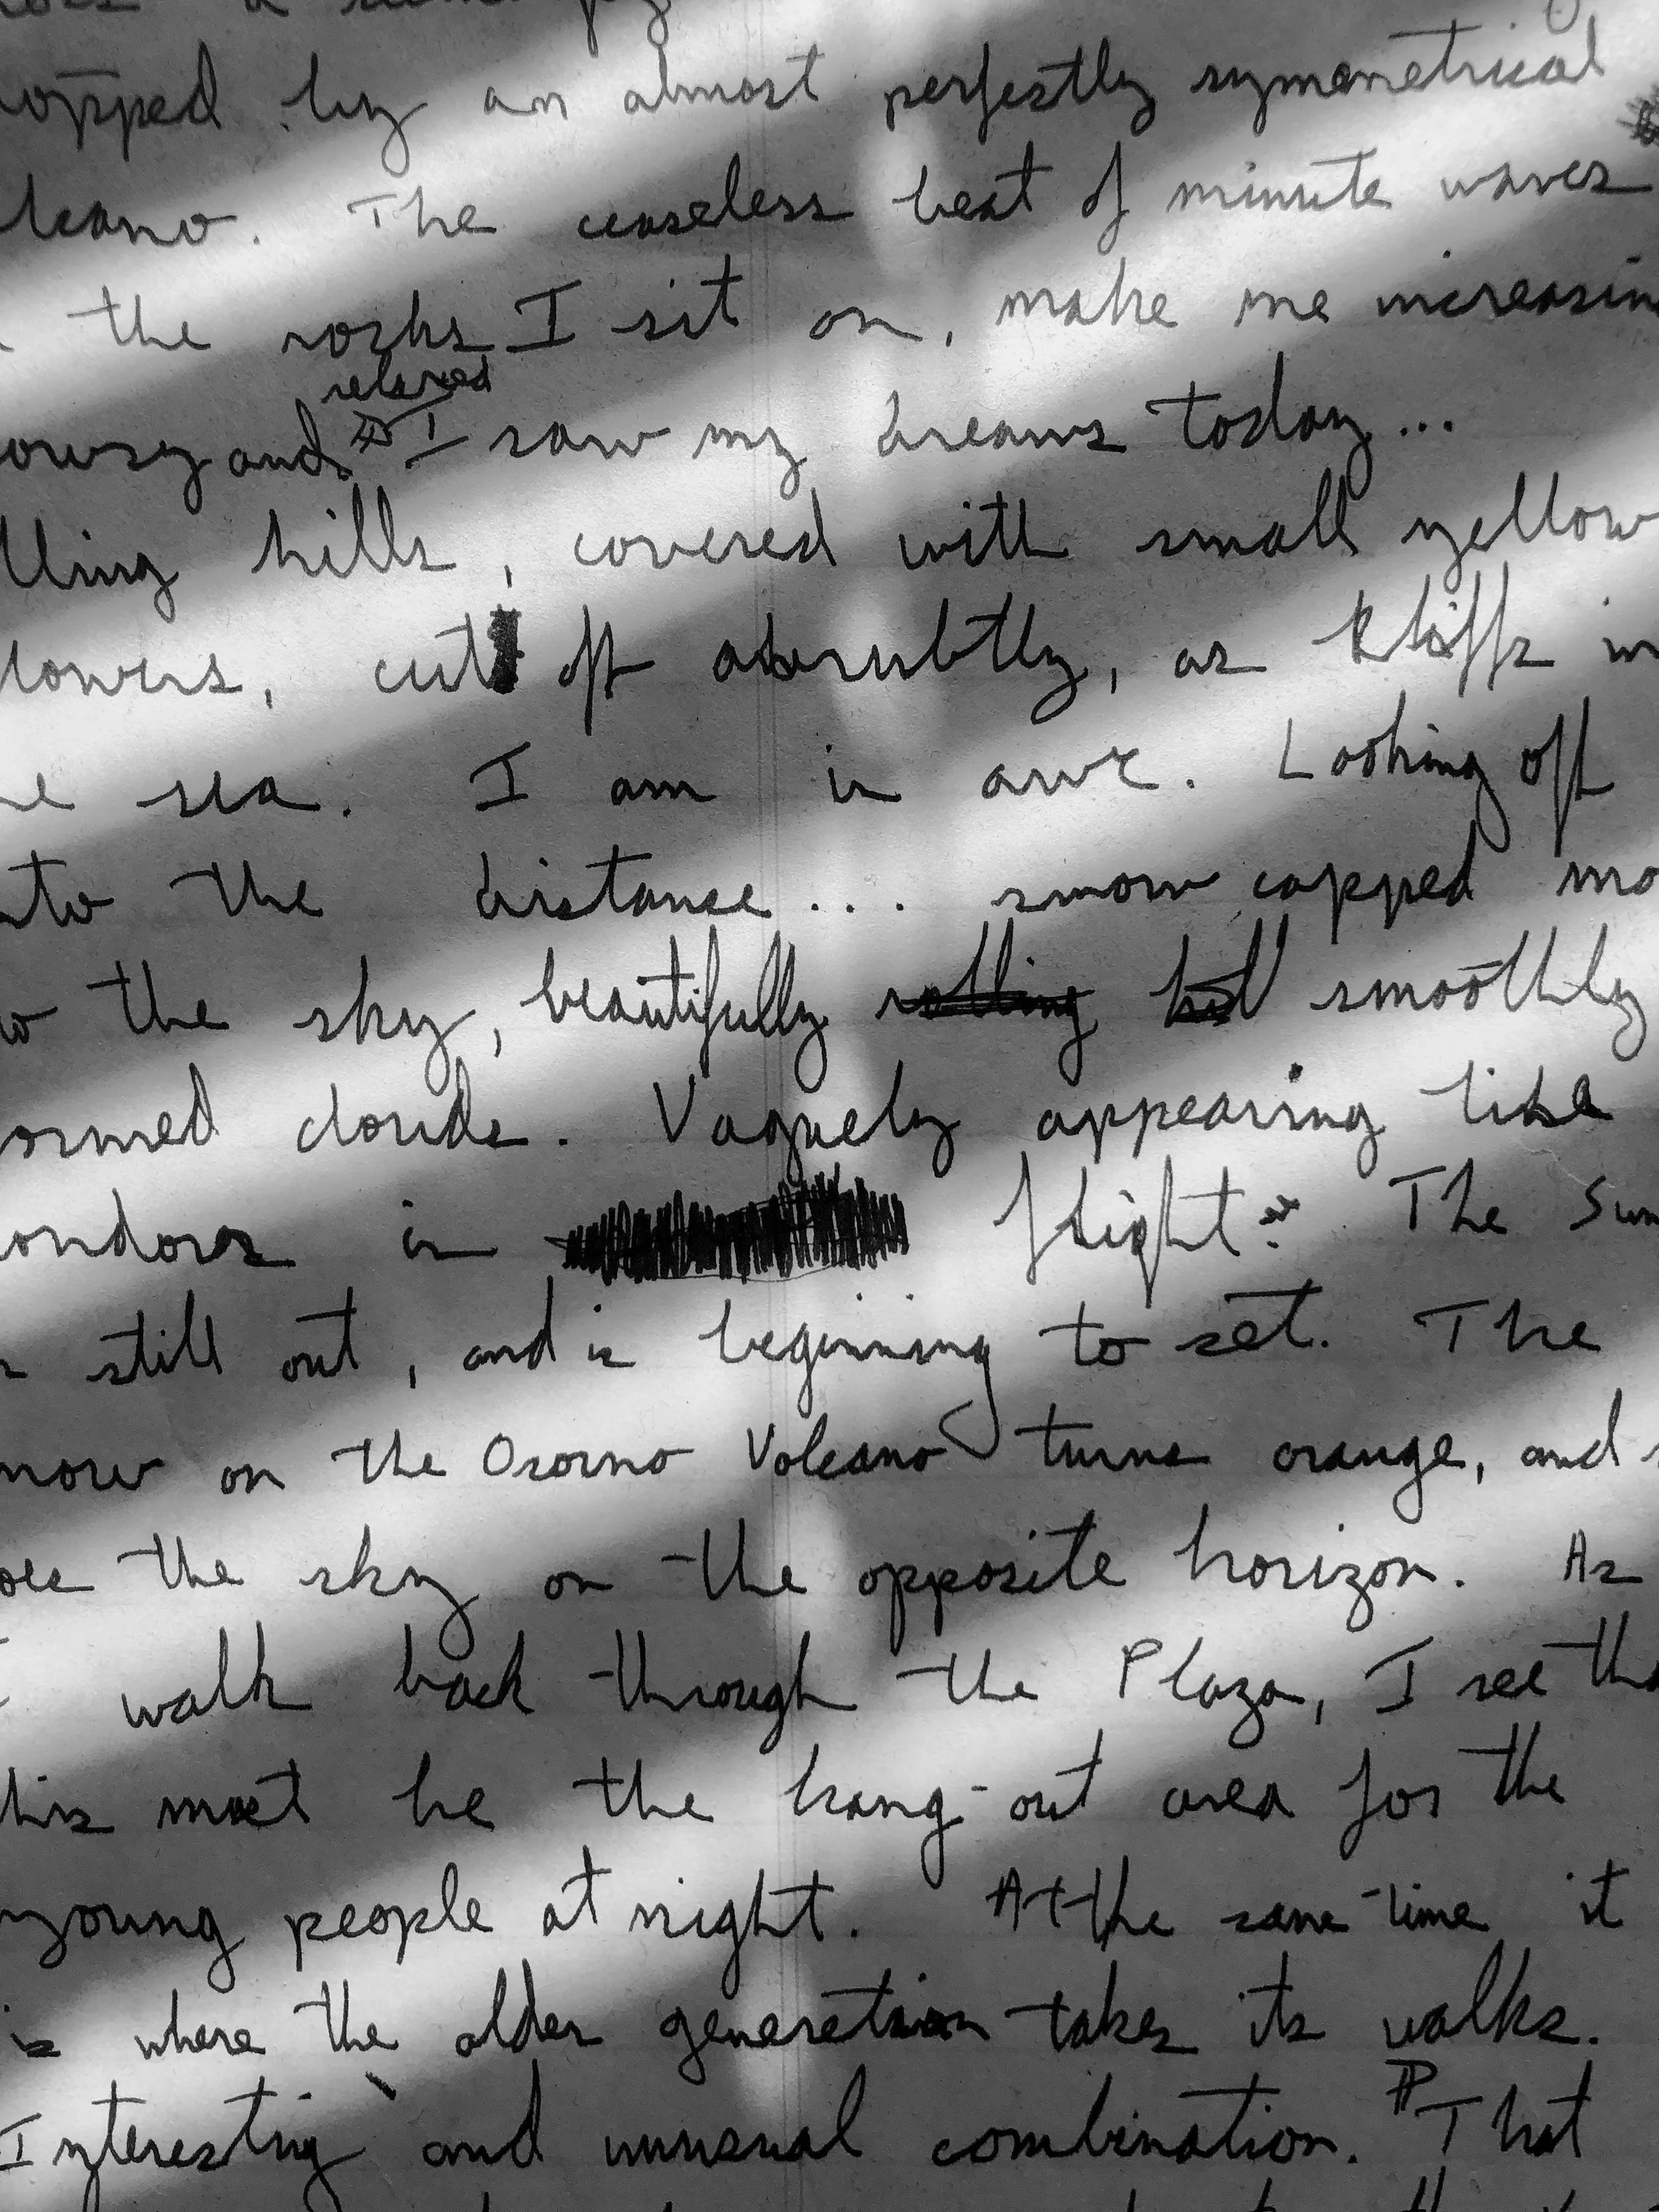 opped by an almost perfectly symmetrical
lcano. The ceaseless beat of minute waves
the rocks I sit on, make me increasin
relaxed
owsy and I saw my dreams today...
lling hills, covered with small yellow
lowers, cut off abrubtly, as kliffs in
he sea. I am in awe. Looking off
nto the distance... snow capped mo
to the sky, beautifully rolling hil smoothly
ormed clouds. Vaguely appearing like
ondores in flight. The Sun
s still out, and is beginning to set. The
now on the Osorno Volcano turns orange, and
oes the sky on the opposite horizon. As
I walk back through the Plaza, I see tha
his must be the hang-out area for the
young people at night. At the same time it
is where the older generation takes its walks.
Interesting and unusual combination. ¶ That